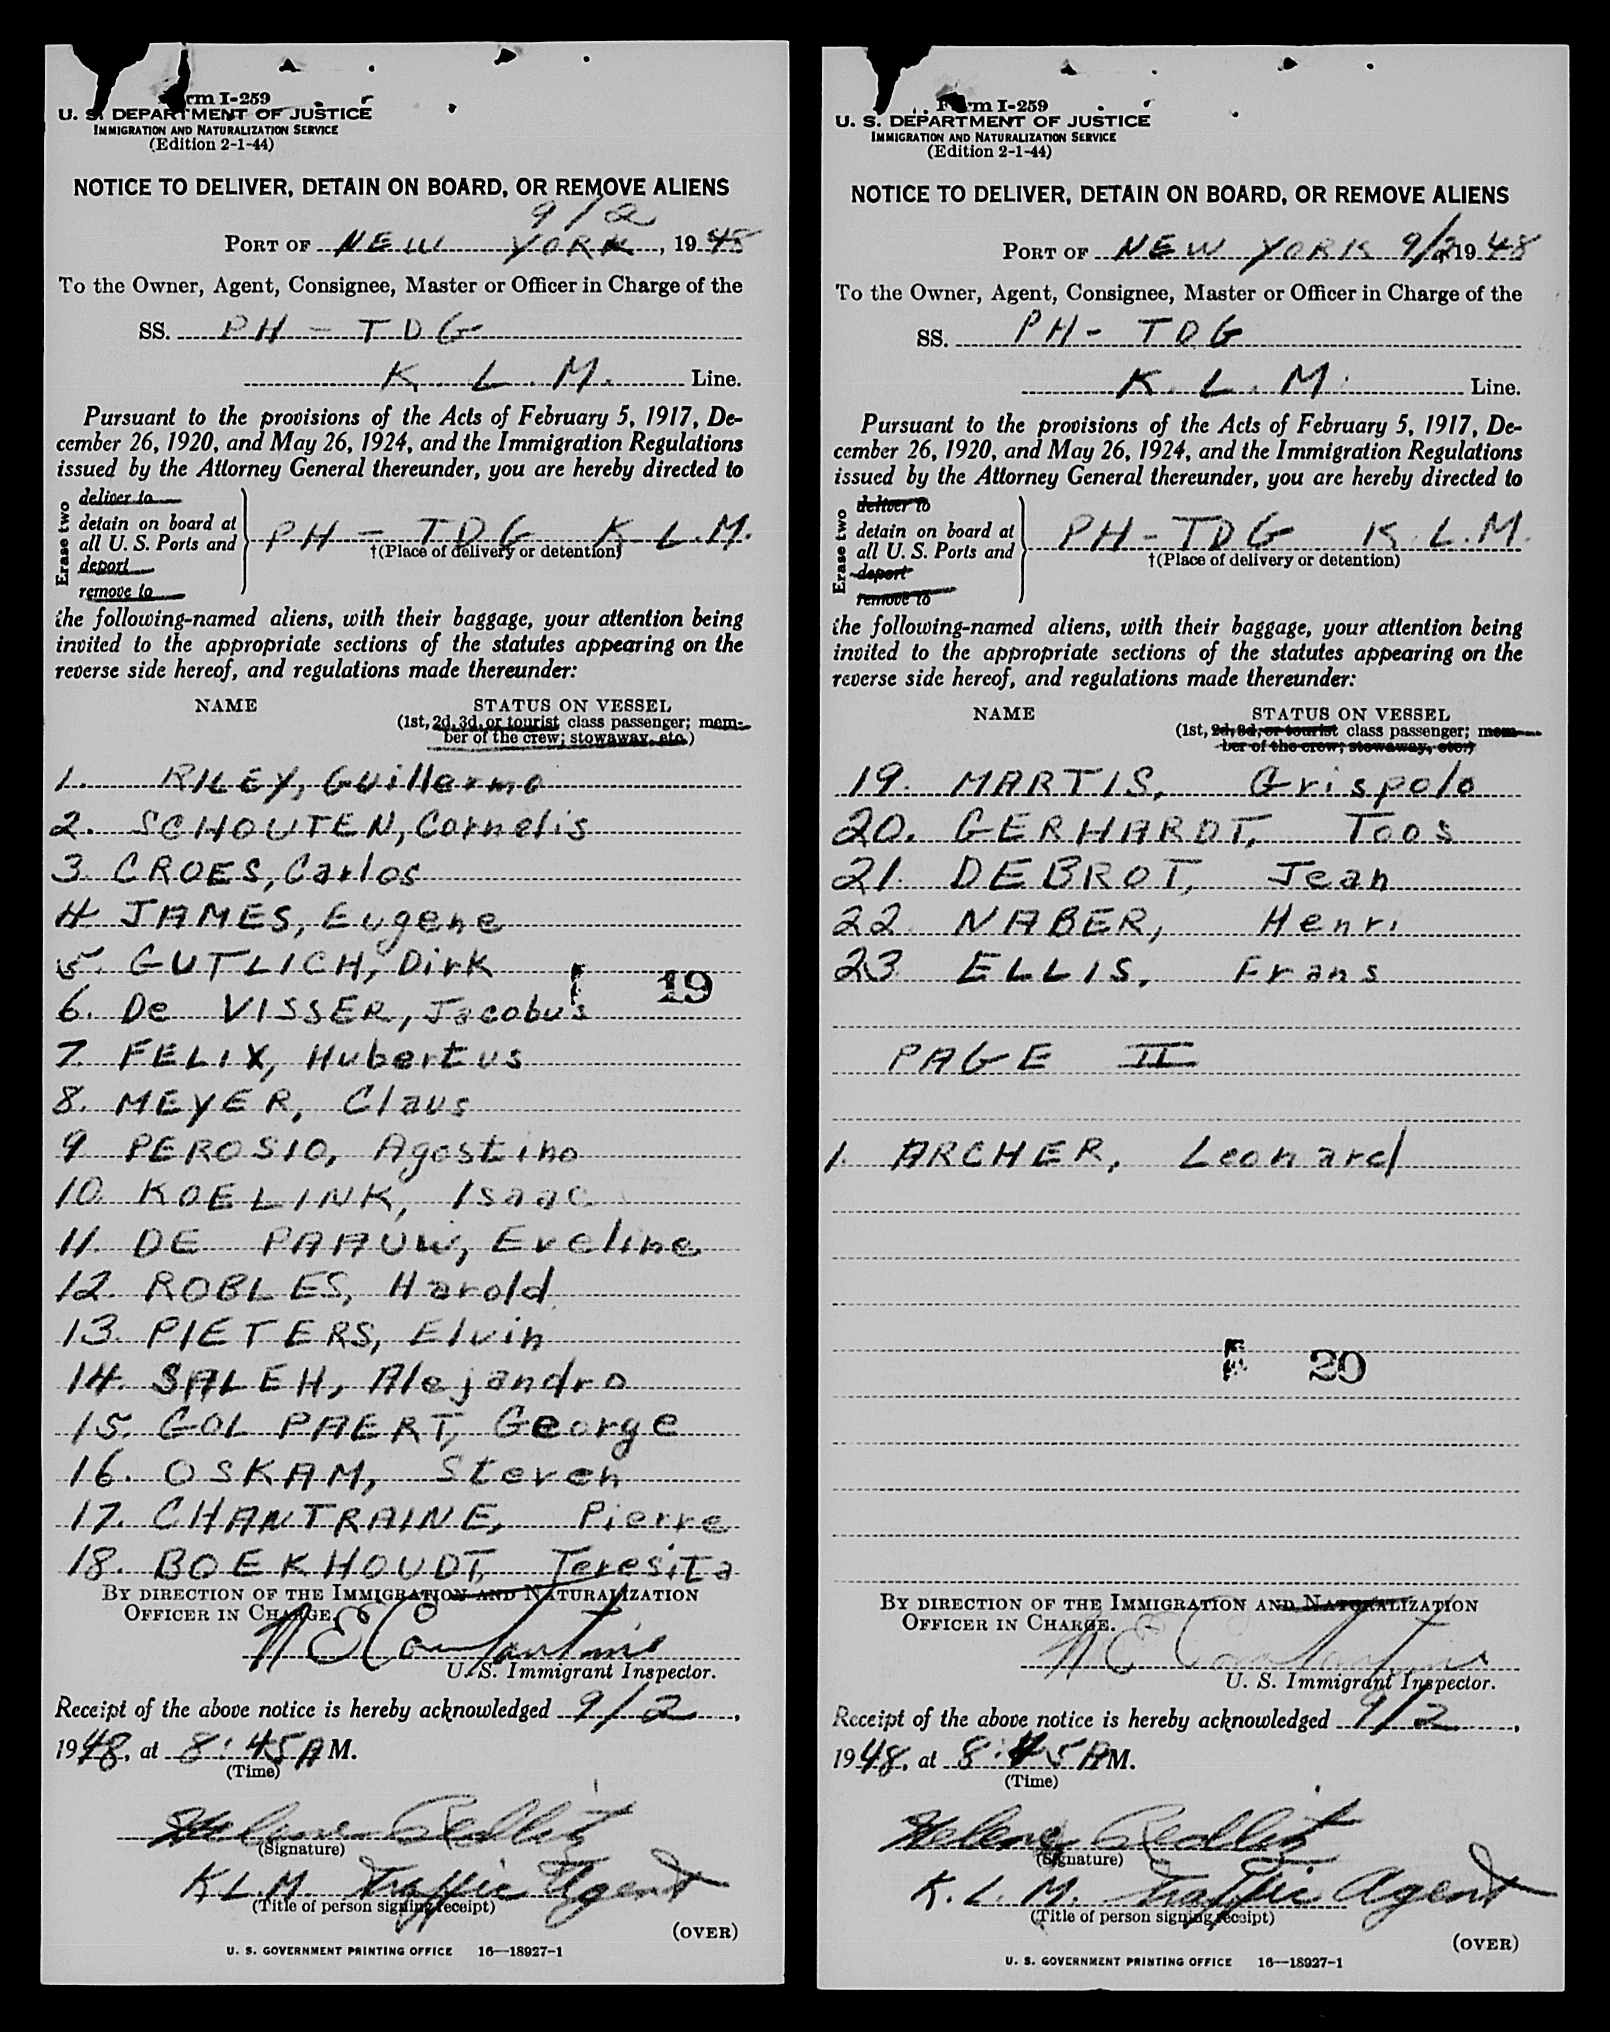 Form I-259
U. S. DEPARTMENT OF JUSTICE
IMMIGRATION AND NATURALIZATION SERVICE
(Edition 2-1-44)
NOTICE TO DELIVER, DETAIN ON BOARD, OR REMOVE ALIENS
9/2
PORT OF NEW YORK, 1948
To the Owner, Agent, Consignee, Master or Officer in Charge of the
SS. PH - TDG
K. L. M. Line.
Pursuant to the provisions of the Acts of February 5, 1917, De-
cember 26, 1920, and May 26, 1924, and the Immigration Regulations
issued by the Attorney General thereunder, you are hereby directed to
Erase two
deliver to
detain on board at
all U. S. Ports and
deport
remove to
PH - TDG K. L. M.
†(Place of delivery or detention)
the following-named aliens, with their baggage, your attention being
invited to the appropriate sections of the statutes appearing on the
reverse side hereof, and regulations made thereunder:
NAME STATUS ON VESSEL
(1st, 2d, 3d, or tourist class passenger; mem-
ber of the crew; stowaway, etc.)
1. RILEY, Guillermo
2. SCHOUTEN, Cornelis
3 CROES, Carlos
4 JAMES, Eugene
5. GUTLICH, Dirk
19
6. De VISSER, Jacobus
7. FELIX, Hubertus
8. MEYER, Claus
9 PEROSIO, Agostino
10. KOELINK, Isaac
11. DE PAAUW, Eveline
12. ROBLES, Harold
13. PIETERS, Elvin
14. SALEH, Alejandro
15. GOL PAERT, George
16. OSKAM, Steven
17. CHANTRAINE, Pierre
18. BOEKHOUDT, Teresita
BY DIRECTION OF THE IMMIGRATION AND NATURALIZATION
OFFICER IN CHARGE.
N E Constantine
U. S. Immigrant Inspector.
Receipt of the above notice is hereby acknowledged 9/2,
1948, at 8:45 A M.
(Time)
Helene Redlitz
(Signature)
K L M Traffic Agent
(Title of person signing receipt)
(OVER)
U. S. GOVERNMENT PRINTING OFFICE 16—18927-1
Form I-259
U. S. DEPARTMENT OF JUSTICE
IMMIGRATION AND NATURALIZATION SERVICE
(Edition 2-1-44)
NOTICE TO DELIVER, DETAIN ON BOARD, OR REMOVE ALIENS
PORT OF NEW YORK 9/2, 1948
To the Owner, Agent, Consignee, Master or Officer in Charge of the
SS. PH - TDG
K. L. M. Line.
Pursuant to the provisions of the Acts of February 5, 1917, De-
cember 26, 1920, and May 26, 1924, and the Immigration Regulations
issued by the Attorney General thereunder, you are hereby directed to
Erase two
deliver to
detain on board at
all U. S. Ports and
deport
remove to
PH - TDG K. L. M.
†(Place of delivery or detention)
the following-named aliens, with their baggage, your attention being
invited to the appropriate sections of the statutes appearing on the
reverse side hereof, and regulations made thereunder:
NAME STATUS ON VESSEL
(1st, 2d, 3d, or tourist class passenger; mem-
ber of the crew; stowaway, etc.)
19. MARTIS, Grispolo
20. GERHARDT, Toos
21. DEBROT, Jean
22. NABER, Henri
23 ELLIS, Frans
PAGE II
1. ARCHER, Leonard
20
BY DIRECTION OF THE IMMIGRATION AND NATURALIZATION
OFFICER IN CHARGE.
N E Constantine
U. S. Immigrant Inspector.
Receipt of the above notice is hereby acknowledged 9/2,
1948, at 8:45 A M.
(Time)
Helene Redlitz
(Signature)
K. L. M. Traffic Agent
(Title of person signing receipt)
(OVER)
U. S. GOVERNMENT PRINTING OFFICE 16—18927-1